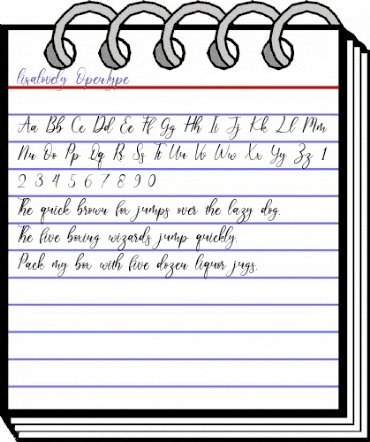 lisalovely Opentype
Aa Bb Cc Dd Ee Ff Gg Hh Ii Jj Kk Ll Mm
Nn Oo Pp Qq Rr Ss Tt Uu Vv Ww Xx Yy Zz 1
2 3 4 5 6 7 8 9 0
The quick brown fox jumps over the lazy dog.
The five boxing wizards jump quickly.
Pack my box with five dozen liquor jugs.